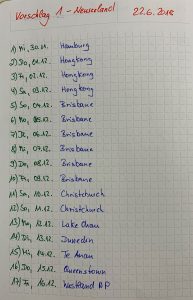 Vorschlag 1 - Neuseeland 22.6.2018
1) Mi, 30.11. Hamburg
2) Do, 01.12. Hongkong
3) Fr, 02.12. Hongkong
4) Sa, 03.12. Hongkong
5) So, 04.12. Brisbane
6) Mo, 05.12. Brisbane
7) Di, 06.12. Brisbane
8) Mi, 07.12. Brisbane
9) Do, 08.12. Brisbane
10) Fr, 09.12. Brisbane
11) Sa, 10.12. Christchurch
12) So, 11.12. Christchurch
13) Mo, 12.12. Lake Ohau
14) Di, 13.12. Dunedin
15) Mi, 14.12. Te Anau
16) Do, 15.12. Queenstown
17) Fr, 16.12. Westland NP